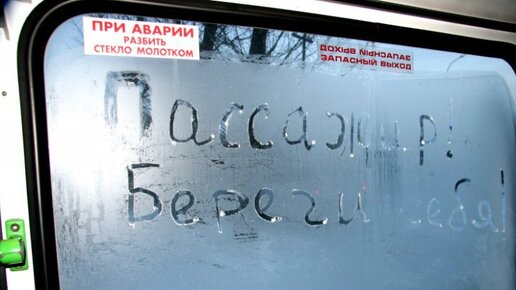 ПРИ АВАРИИ
РАЗБИТЬ
СТЕКЛО МОЛОТКОМ
ЗАПАСНЫЙ ВЫХОД
ЗАПАСНЫЙ ВЫХОД
Пассажир!
Береги себя!